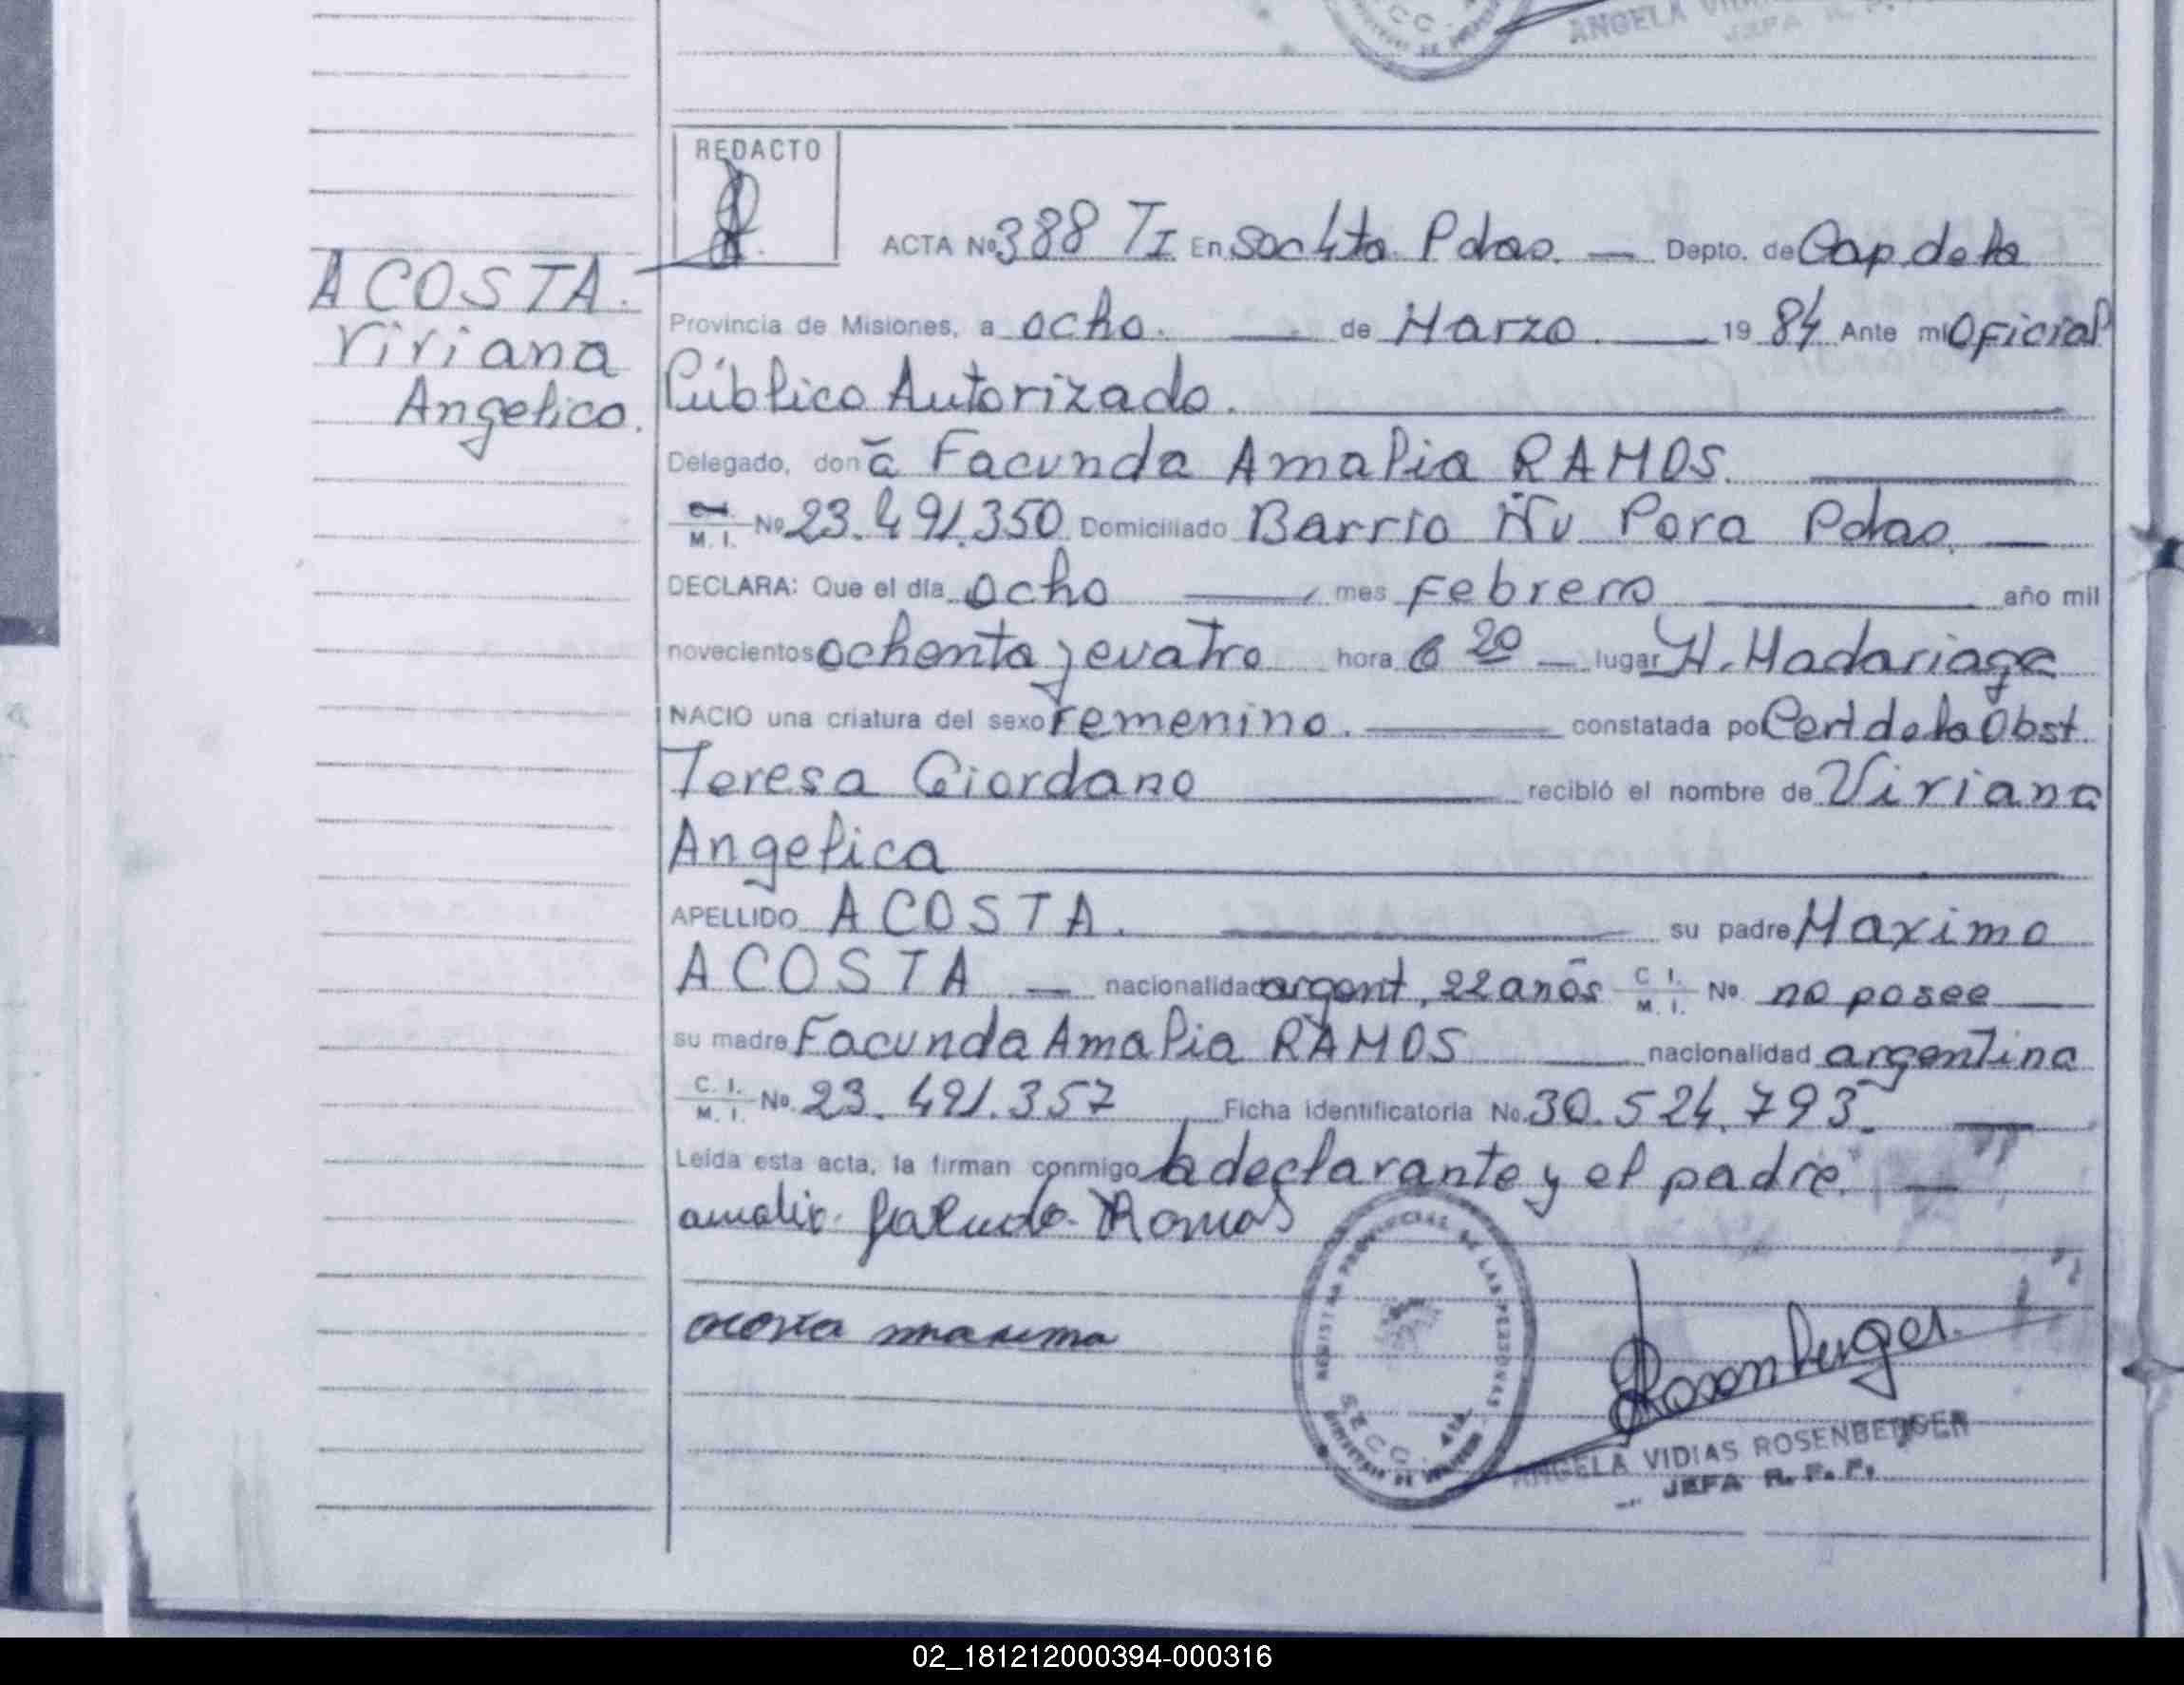 ANGELA
REDACTO
ACTA Nº 388 TI En Sec 4ta Pdas. — Depto. de Cap. de la
ACOSTA.
Provincia de Misiones, a ocho. — de Marzo. — 19 84 Ante mi Oficial
Viviana
Público Autorizado.
Angelica.
Delegado, doña Facunda Amalia RAMOS.
M. I. Nº 23.491.350 Domiciliado Barrio Ñu Pora Pdas. —
DECLARA: Que el día ocho — mes Febrero — año mil
novecientos ochenta y cuatro hora 6 20 — lugar H. Madariaga
NACIO una criatura del sexo Femenino. — constatada po Cert de la Obst.
Teresa Giordano — recibió el nombre de Viviana
Angelica
APELLIDO ACOSTA. — su padre Maximo
ACOSTA — nacionalidad argent, 22 años C. I. M. I. Nº no posee —
su madre Facunda Amalia RAMOS — nacionalidad argentina
C. I. M. I. Nº 23.491.357 Ficha identificatoria No. 30.524.793. —
Leída esta acta, la firman conmigo la declarante y el padre. —
Ramos
REGISTRO PROVINCIAL DE LAS PERSONAS
acosta maximo
Rosenberger.
SECC. 4ta.
ANGELA VIDIAS ROSENBERGER
JEFA R. P. P.
02_181212000394-000316